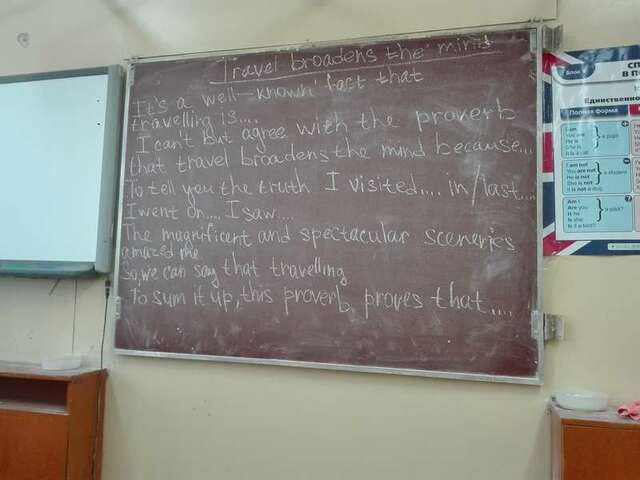 Travel broadens the mind
It's a well-known fact that
travelling is....
I can't but agree with the proverb
that travel broadens the mind because...
To tell you the truth I visited.... in/last...
I went on.... I saw....
The magnificent and spectacular sceneries
amazed me
So, we can say that travelling
To sum it up, this proverb proves that....
Блок
СП
В П
Единственно
Полная форма
I am
You are
He is
She is
It is a cat
a pupil
I am not
You are not
He is not
She is not
It is not a dog
a student
Am I
Are you
Is he
Is she
Is it a bird?
a pilot?